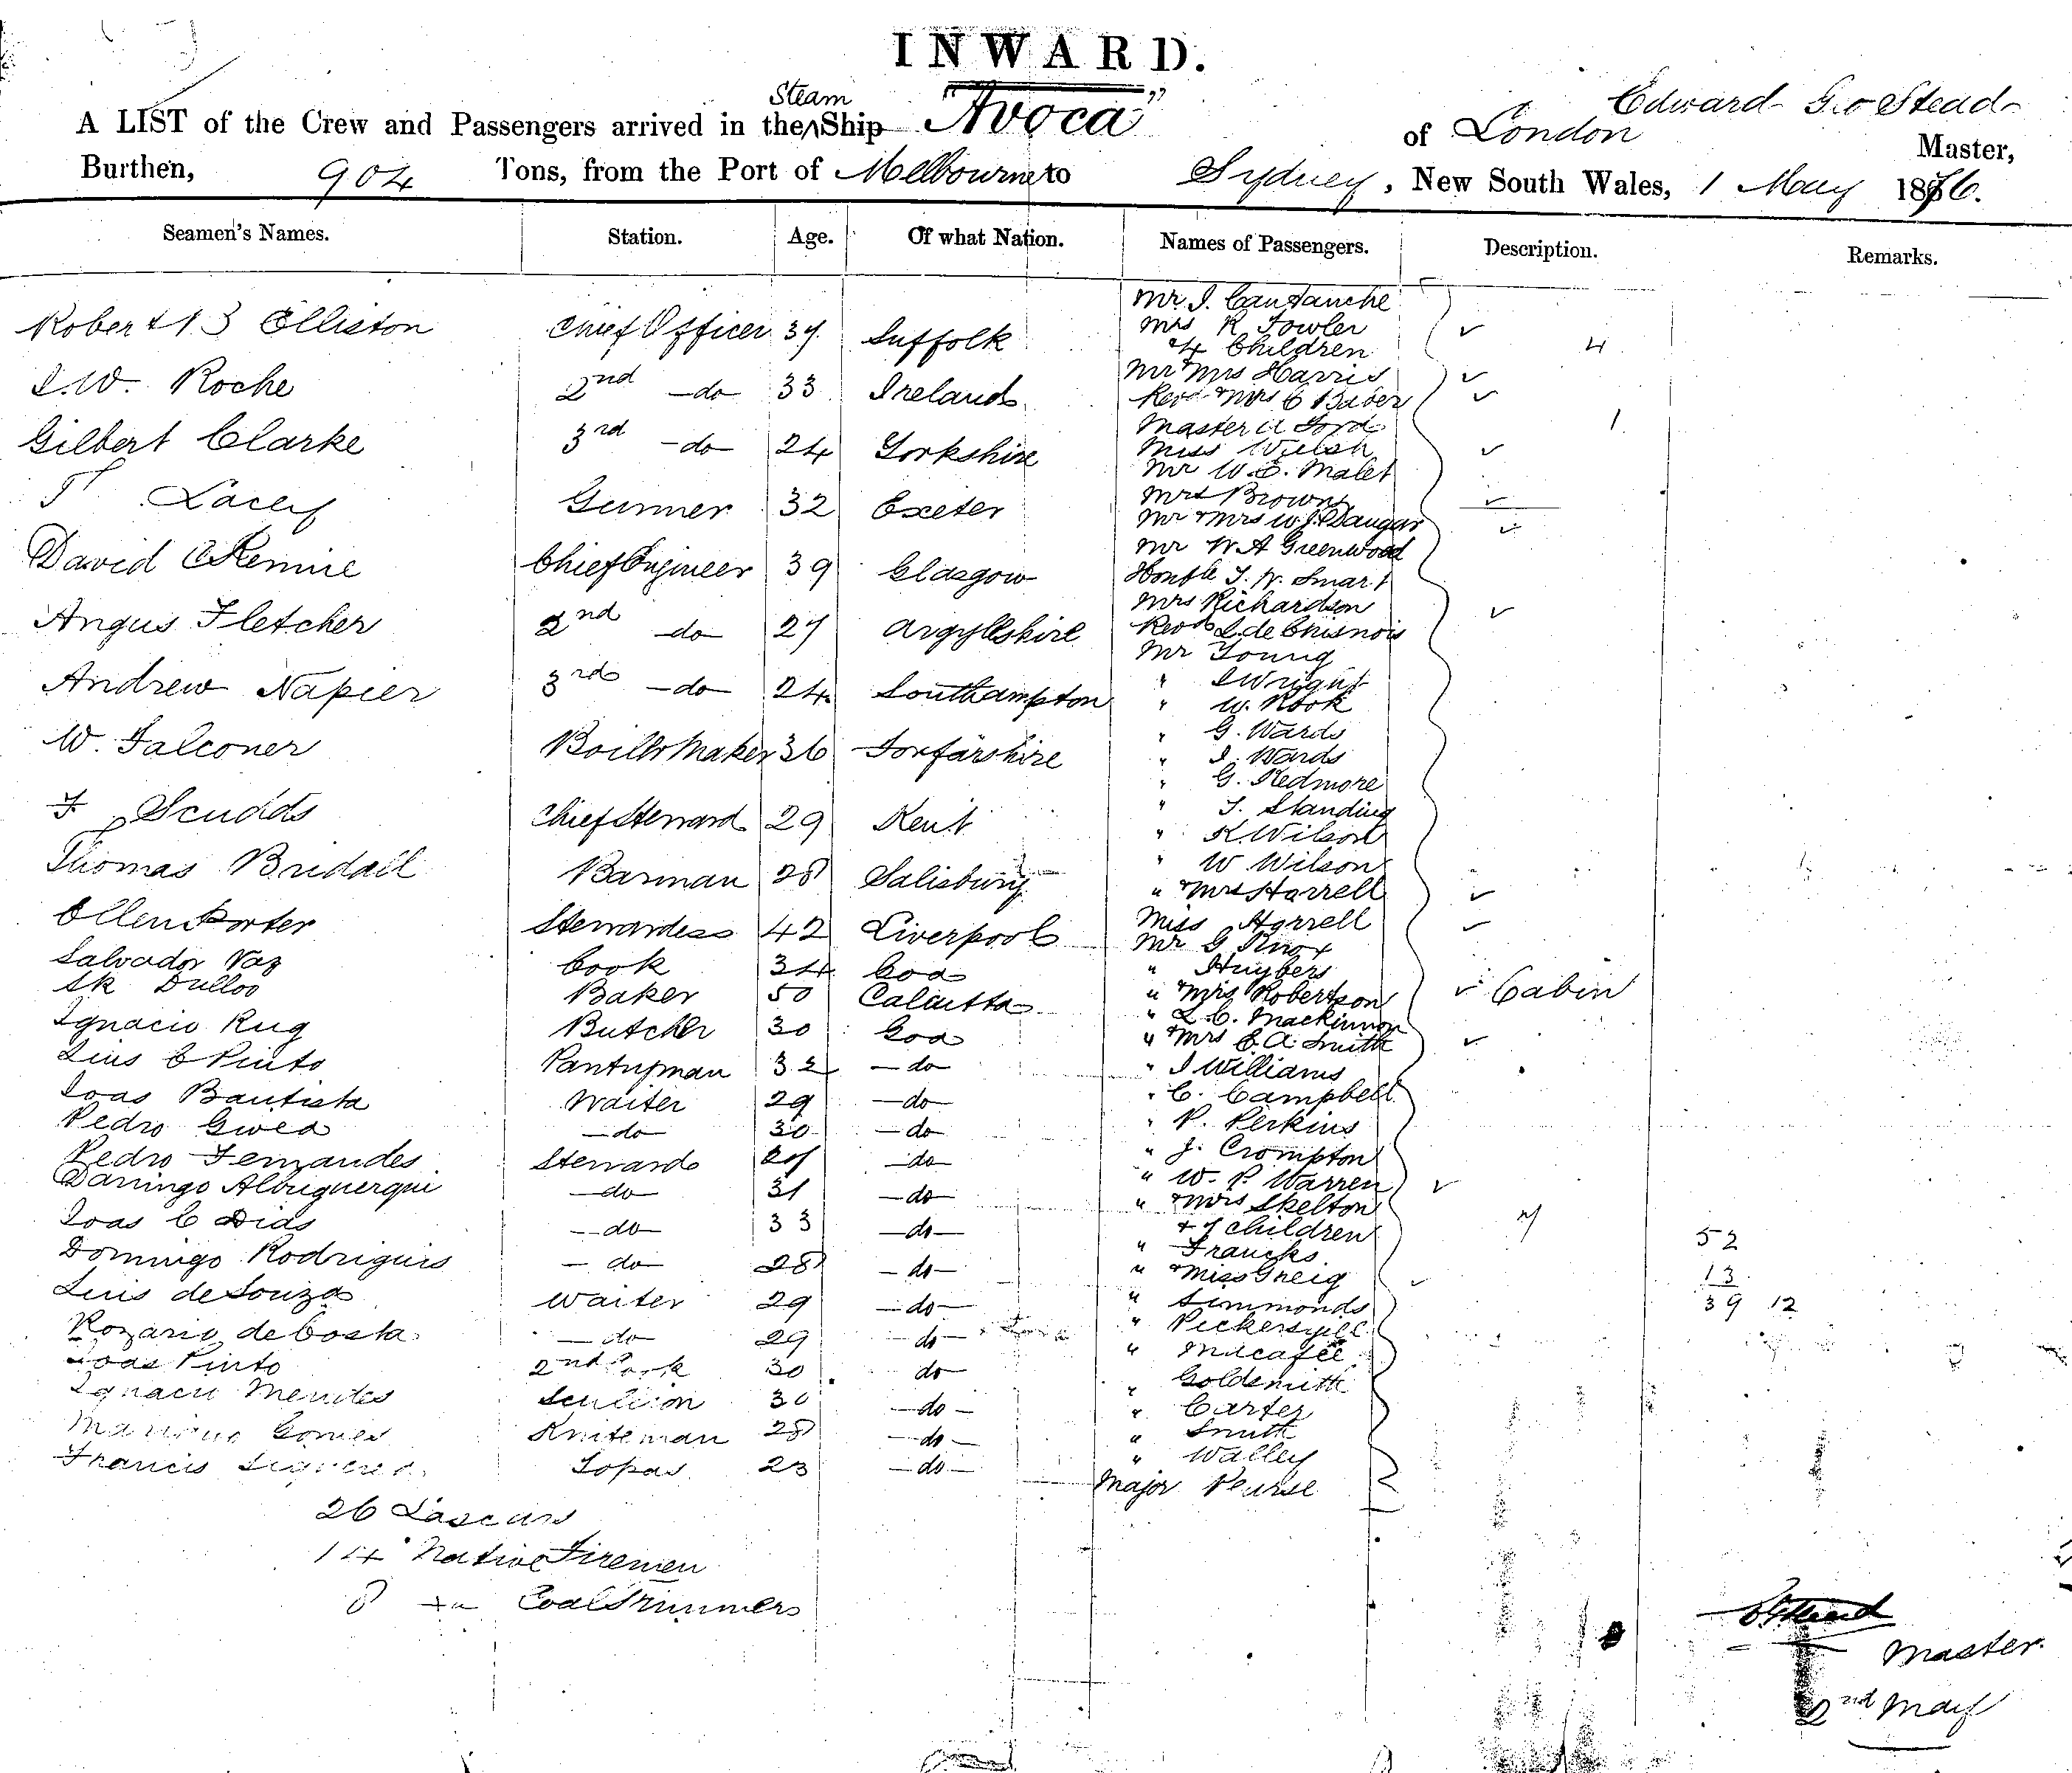 INWARD.
A LIST of the Crew and Passengers arrived in the Steam Ship "Avoca" of London Edward Geo Stead Master,
Burthen, 904 Tons, from the Port of Melbourne to Sydney, New South Wales, 1 May 1876.
Seamen's Names. Station. Age. Of what Nation. Names of Passengers. Description. Remarks.
Mr. J.
Robert B Elliston Chief Officer 37 Suffolk Mrs R Fowler
4 Children 4
J. W. Roche 2nd do 33 Ireland Mr & Mrs Harris
Revd & Mrs C Baber
Gilbert Clarke 3rd do 24 Yorkshire Master A Ford 1
Miss Welsh
Mr W. E. Malet
T Lacey Gunner 32 Exeter Mrs Brown
Mr & Mrs W. J. Dangar
David Rennie Chief Engineer 39 Glasgow Mr W A Greenwood
Honble T. W. Smart
Angus Fletcher 2nd do 27 Argyllshire Mrs Richardson
Revd L. de
Mr Young
Andrew Napier 3rd do 24 Southampton " J Wright
" W. Rook
W. Falconer Boiler Maker 36 Forfarshire " G. Wards
" J. Wards
" G. Redmore
F Scudds Chief Steward 29 Kent " T. Standing
" R. Wilson
Thomas Bridall Barman 28 Salisbury " W Wilson
" & Mrs Harrell
Ellen Porter Stewardess 42 Liverpool Miss Harrell
Mr G Knox
Salvador Vaz Cook 34 Goa " Huybers
Sk Dulloo Baker 50 Calcutta " & Mrs Robertson Cabin
Ignacio Rug Butcher 30 Goa " L. C. Mackinnon
" & Mrs E. A. Smith
Luis C Pinto Pantryman 32 do " J Williams
Joas Bautista Waiter 29 do " C. Campbell
Pedro do 30 do " P. Perkins
Pedro Fernandes Steward 27 do " J. Crompton
Domingo Albuquerqui do 31 do " W. P. Warren
Joas C Dias do 33 do " & Mrs Skelton
& 7 Children 7 52
Domingo Rodriguis do 28 do " Francks
" & Miss Greig 13
Luis de Souza Waiter 29 do " Simmonds 39 12
Rozario de Costa do 29 do " Pickersgill
" Macafee
Joas Pinto 2nd Cook 30 do " Goldsmith
Ignacio Mendes Scullion 30 do " Carter
Gomes Knifeman 28 do " Smith
Francis Topas 23 do " Walley
Major Pearse
26 Lascars
14 Native Firemen
8 do Coal Trimmers
E G Stead
Master
2nd May